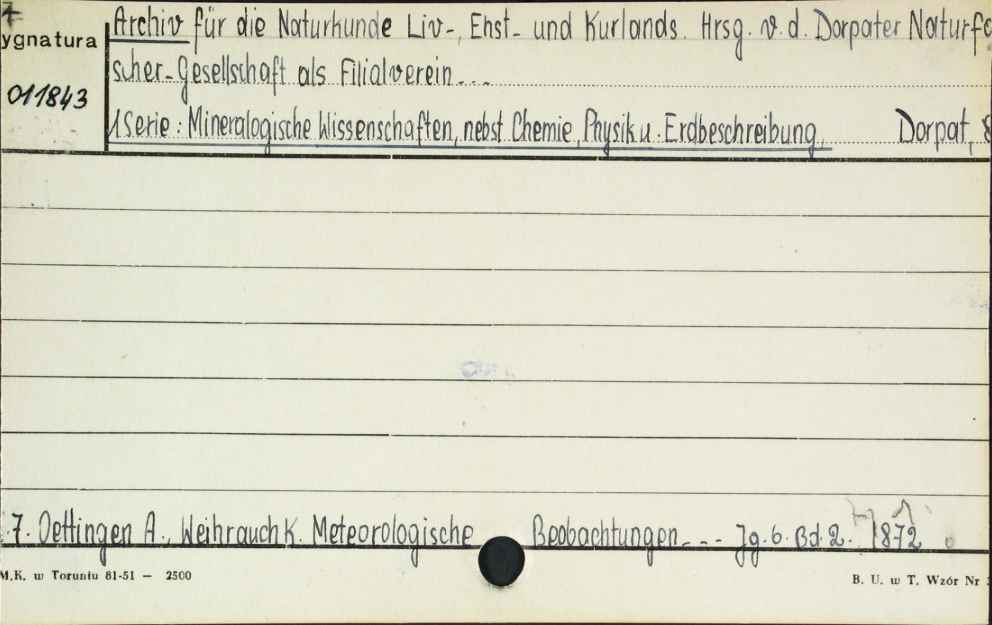 ygnatura
011843
Archiv für die Naturkunde Liv-, Ehst- und Kurlands. Hrsg. v. d. Dorpater Naturfo
scher-Gesellschaft als Filialverein...
1 Serie: Mineralogische Wissenschaften, nebst Chemie, Physik u. Erdbeschreibung. Dorpat,
7. Oettingen A., Weihrauch K. Meteorologische Beobachtungen... Jg. 6. Bd. 2. 1872
M.K. w Toruniu 81-51 — 2500
B. U. w T. Wzór Nr